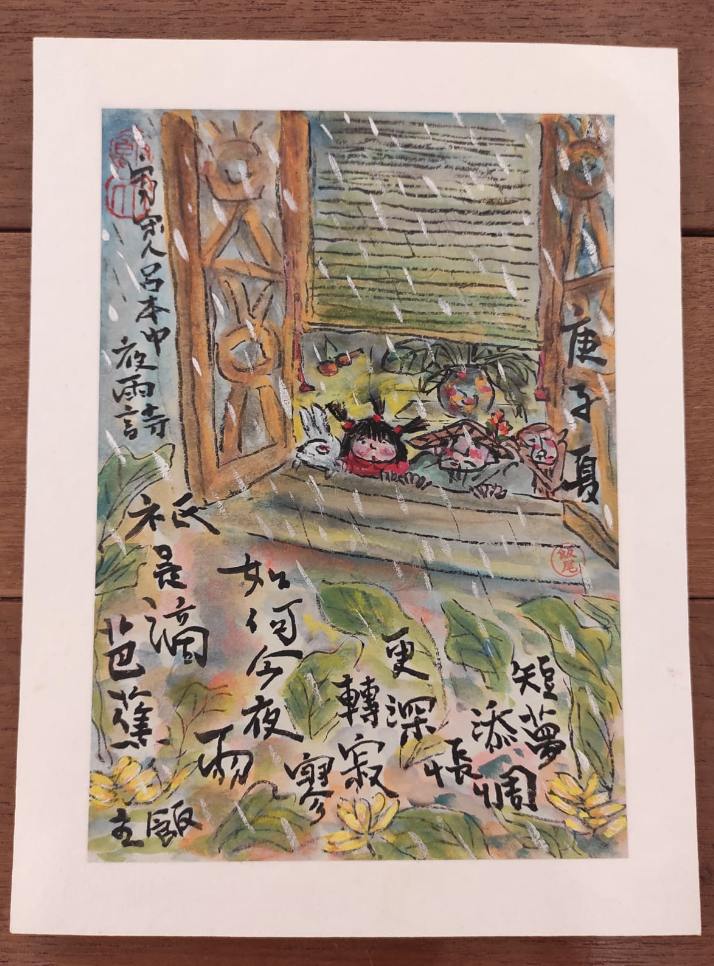 庚子夏
短夢
添惆
悵
更深
轉寂
寥
如何今夜
雨
祇是滴
芭蕉
宋人呂本中
夜雨詩
飯尾